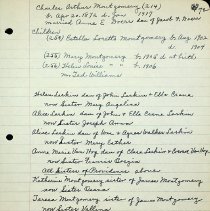 Charles Arthur Montgomery (214)
b. Apr 20. 1876 d. Jan 1959
married Annie E. Roers dau of Jacob F. Roers
Children
(254) Estelle Loretto Montgomery b. Aug 1902
d. 1904
(255) Mary Montgomery b 1905 d at birth
(256) Helen Louise " b. 1906
m. Ted Williams
Helen Larkin dau of John Larkin & Ella Crane
now Sister Mary Angelica
Alice Larkin dau of John & Ella Crane Larkin
now Sister Joseph Anna
Alice Larkin dau of Wm & Agnes Walker Larkin
now Sister Mary Esther
Anna Marie Van Hoy dau of Clare Larkin & Van Hoy
now Sister Francis Borgia
All Sisters of Providence above
Katherine Montgomery sister of James Montgomery
now Sister Osana
Teresa Montgomery sister of James Montgomery
now Sister